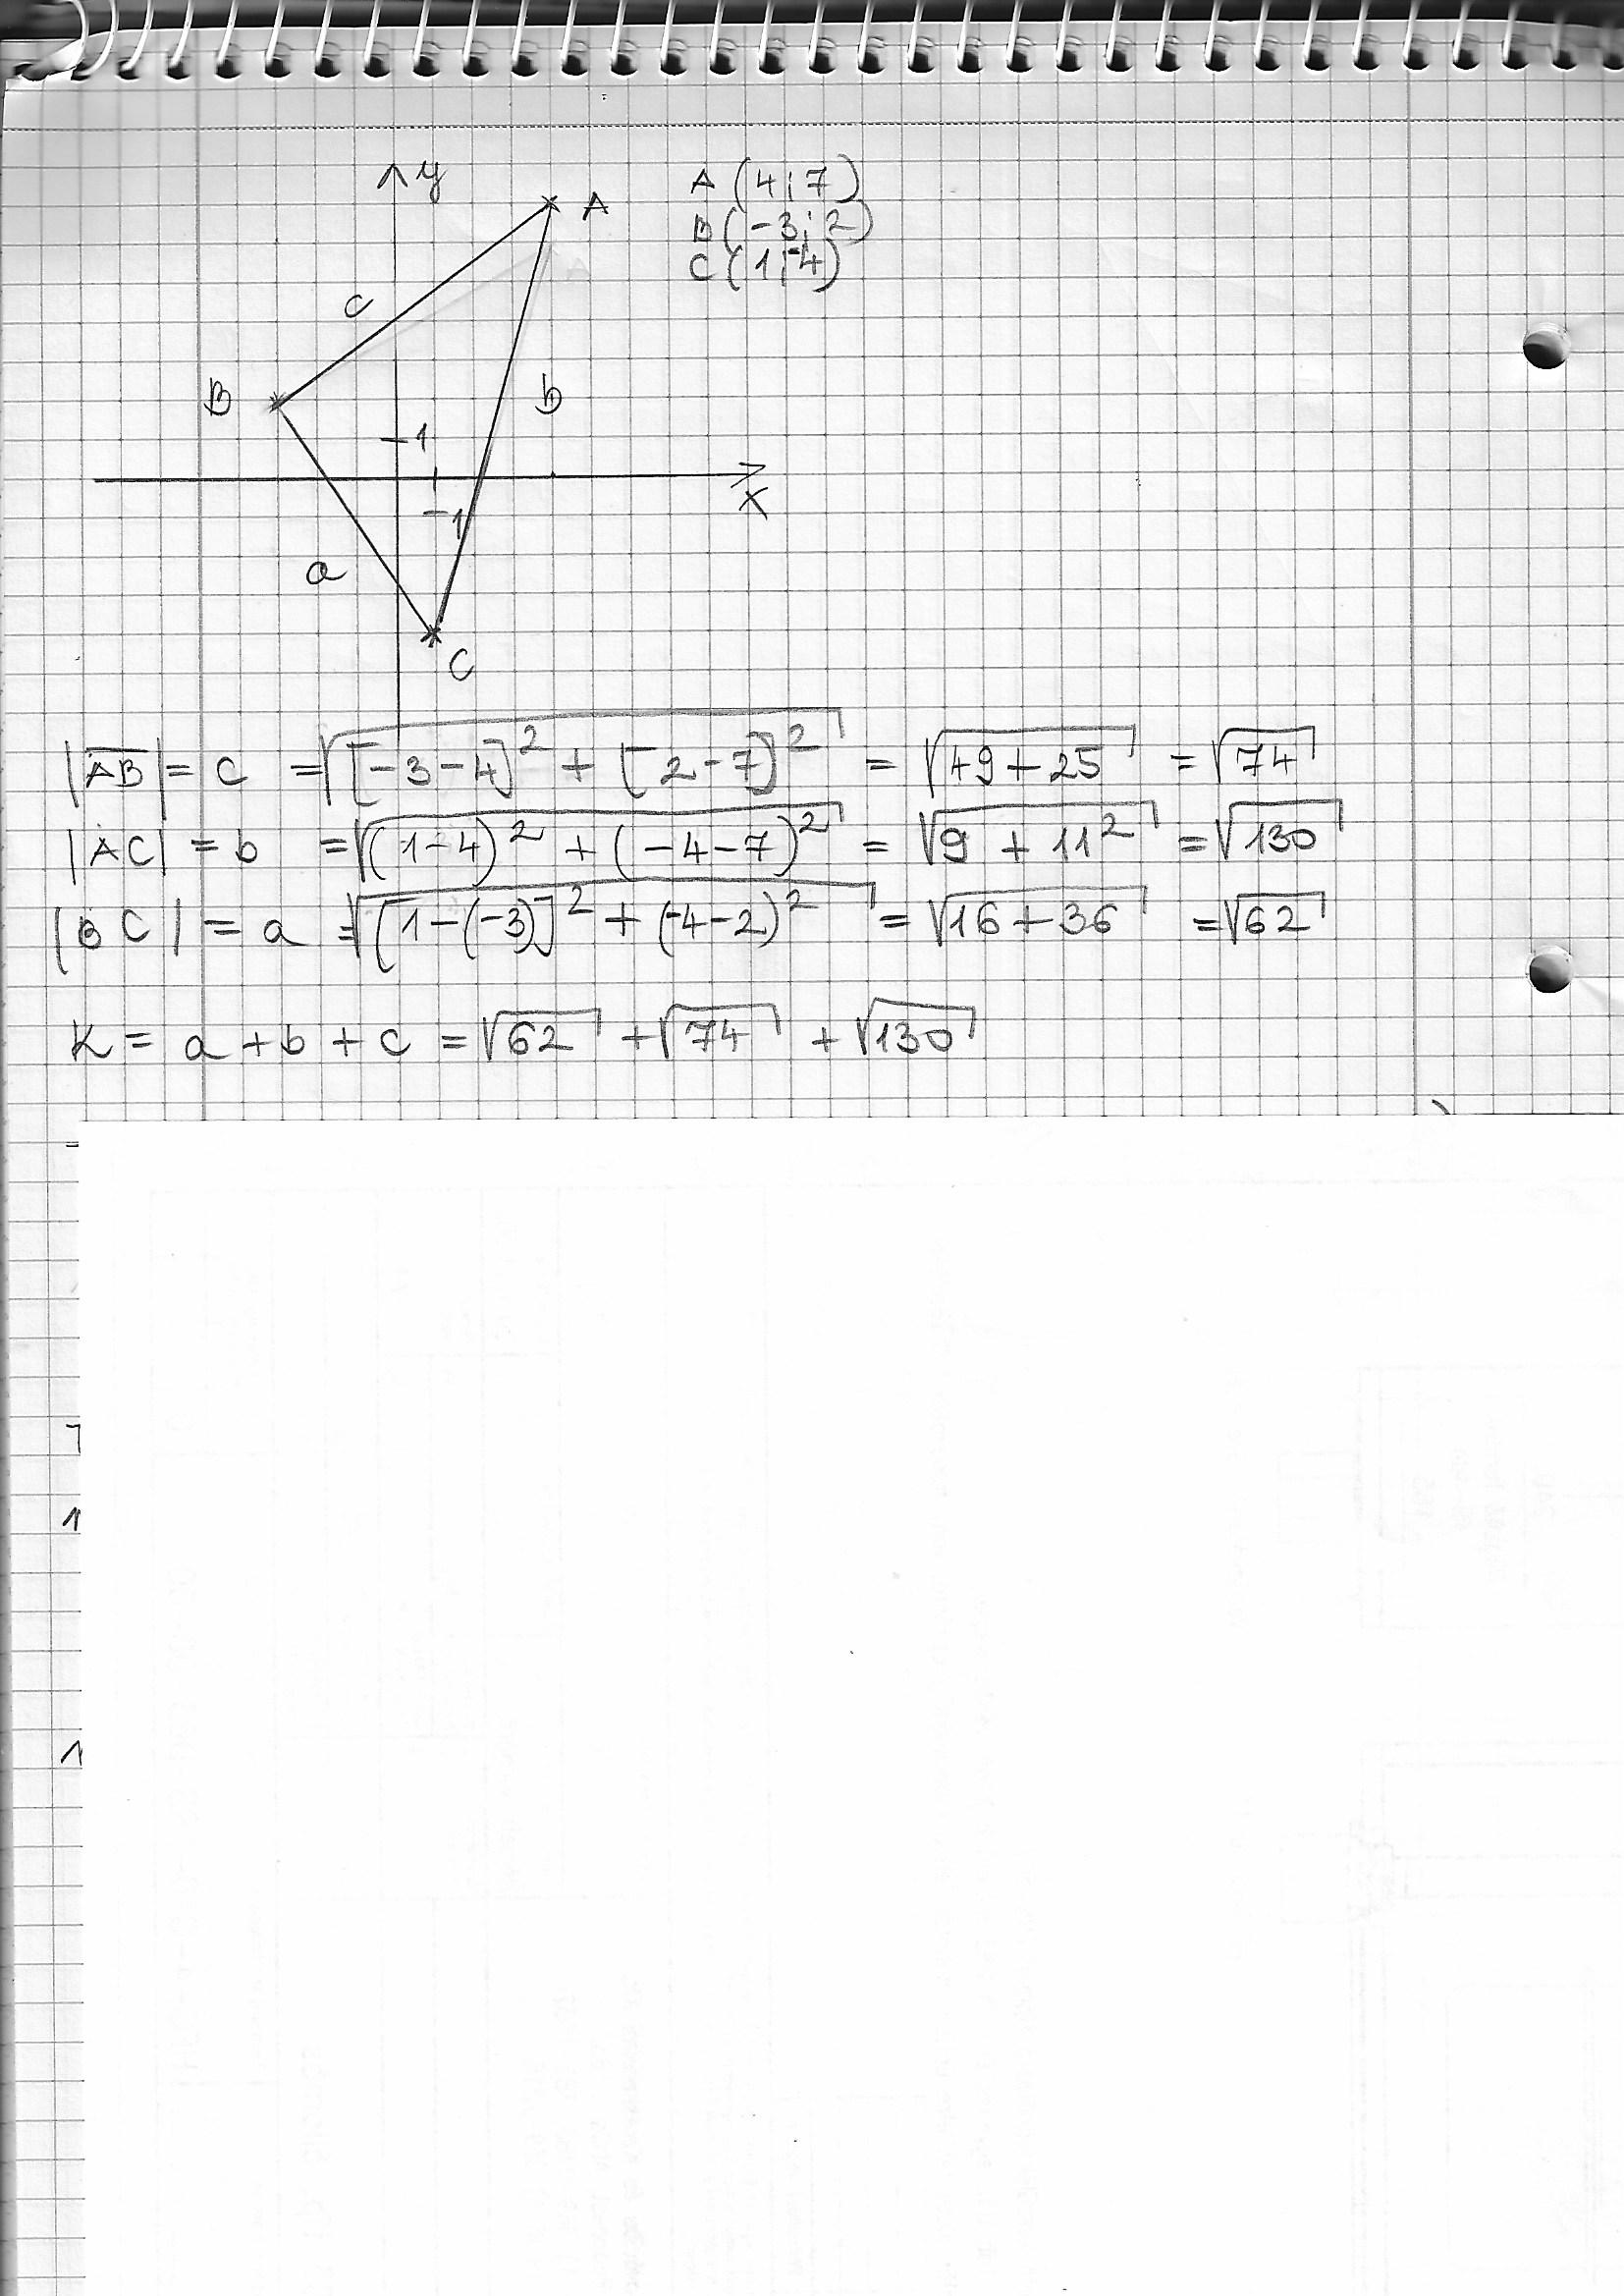 y
A
A (4;7)
B (-3;2)
C (1;-4)
c
B
b
-1
x
-1
a
C
|AB| = c = √[-3-4]² + [2-7]² = √49+25 = √74
|AC| = b = √(1-4)² + (-4-7)² = √9 + 11² = √130
|BC| = a = √[1-(-3)]² + (-4-2)² = √16+36 = √62
K = a + b + c = √62 + √74 + √130
=
1
1